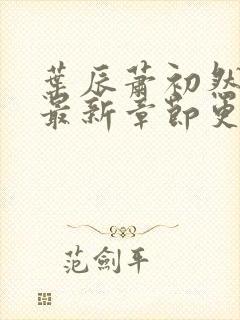 葉辰蕭初然
最新章節更
范劍平